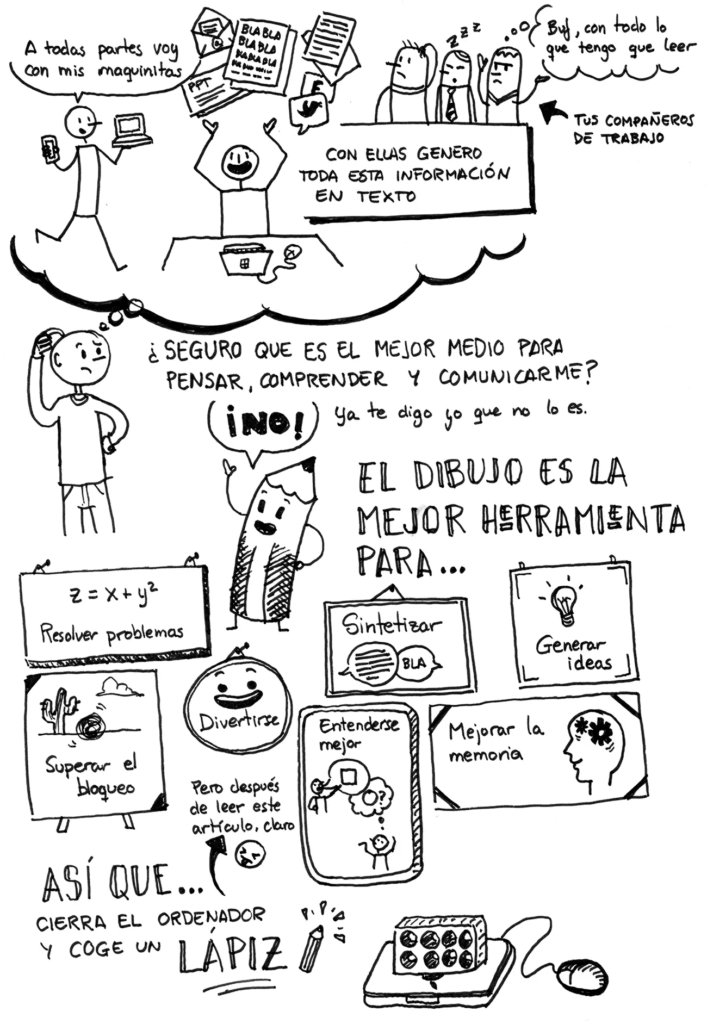 A todas partes voy
con mis maquinitas
BLA BLA
BLA BLA
BLA BLA BLA
PPT
Buf, con todo lo
que tengo que leer
Z Z Z
TUS COMPAÑEROS
DE TRABAJO
CON ELLAS GENERO
TODA ESTA INFORMACIÓN
EN TEXTO
¿SEGURO QUE ES EL MEJOR MEDIO PARA
PENSAR, COMPRENDER Y COMUNICARME?
¡NO!
Ya te digo yo que no lo es.
EL DIBUJO ES LA
MEJOR HERRAMIENTA
PARA...
z = x + y²
Resolver problemas
Sintetizar
BLA
Generar
ideas
Superar el
bloqueo
Divertirse
Entenderse
mejor
Mejorar la
memoria
Pero después
de leer este
artículo, claro
ASÍ QUE...
CIERRA EL ORDENADOR
Y COGE UN
LÁPIZ